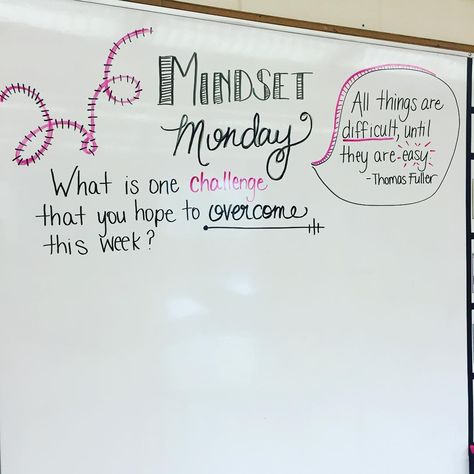 Mindset
Monday
What is one challenge
that you hope to overcome
this week?
All things are
difficult, until
they are easy
- Thomas Fuller